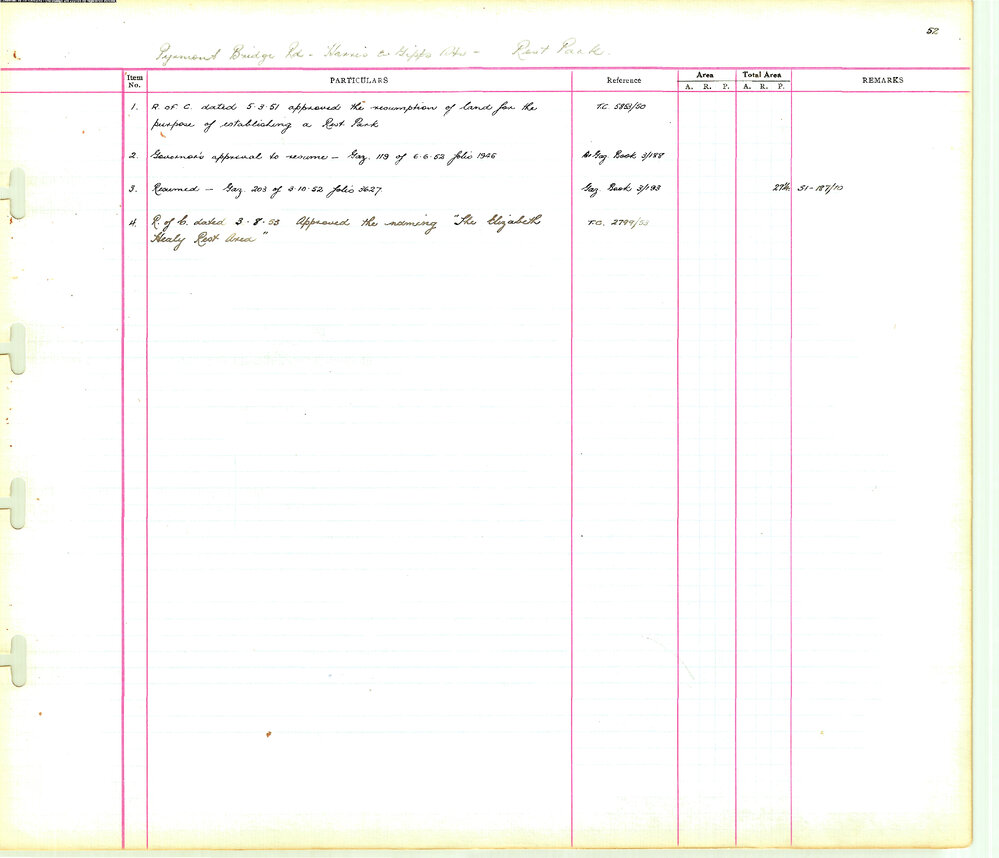 52
Pyrmont Bridge Rd - Harris & Gipps Sts - Rest Park.
Item No. PARTICULARS Reference Area A. R. P. Total Area A. R. P. REMARKS
1. R. of C. dated 5.3.51 approved the resumption of land for the T.C. 5853/50
purpose of establishing a Rest Park
2. Governor's approval to resume - Gaz. 119 of 6.6.52 folio 1946 Gaz. Book 3/188
3. Resumed - Gaz. 203 of 3.10.52 folio 3627. Gaz. Book 3/193 27¼ S1-187/10
4. R. of C. dated 3.8.53 Approved the naming "The Elizabeth T.C. 2799/53
Healy Rest Area"